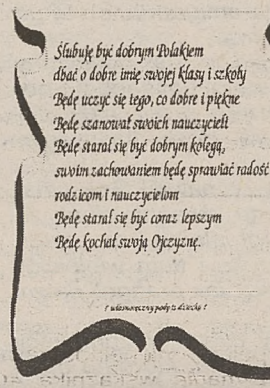 Ślubuję być dobrym Polakiem
dbać o dobre imię swojej klasy i szkoły
Będę uczyć się tego, co dobre i piękne
Będę szanował swoich nauczycieli
Będę starał się być dobrym kolegą,
swoim zachowaniem będę sprawiać radość
rodzicom i nauczycielom
Będę starał się być coraz lepszym
Będę kochał swoją Ojczyznę.
( własnoręczny podpis dziecka )